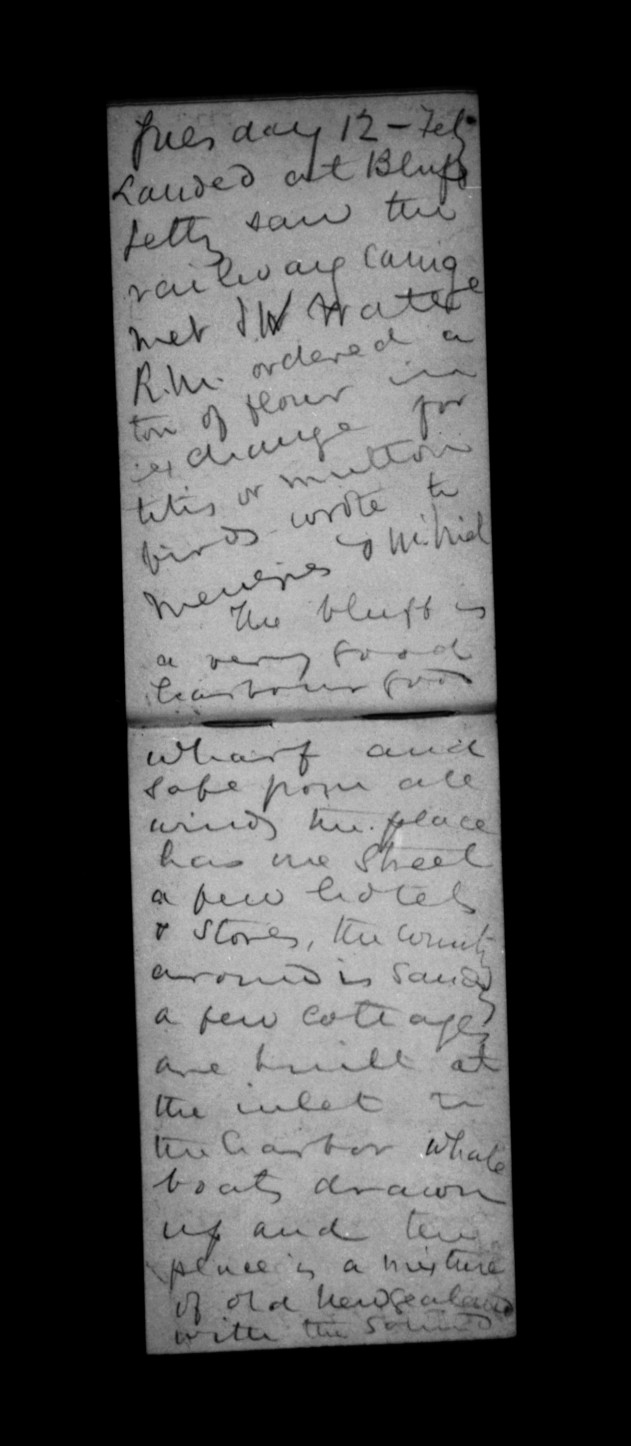 Tuesday 12 - Feb
Landed at Bluff
Jetty saw the
railway carriage
met I W Waters
R.M. ordered a
ton of flour in
exchange for
titis or mutton
birds wrote to
Menzies &
The bluff is
a very good
harbour good
wharf and
safe from all
winds the place
has one Street
a few hotels
& Stores, the country
around is sandy
a few cottages
are built at
the inlet in
the harbor whale
boats drawn
up and the
place is a mixture
of old New Zealand
with the sound